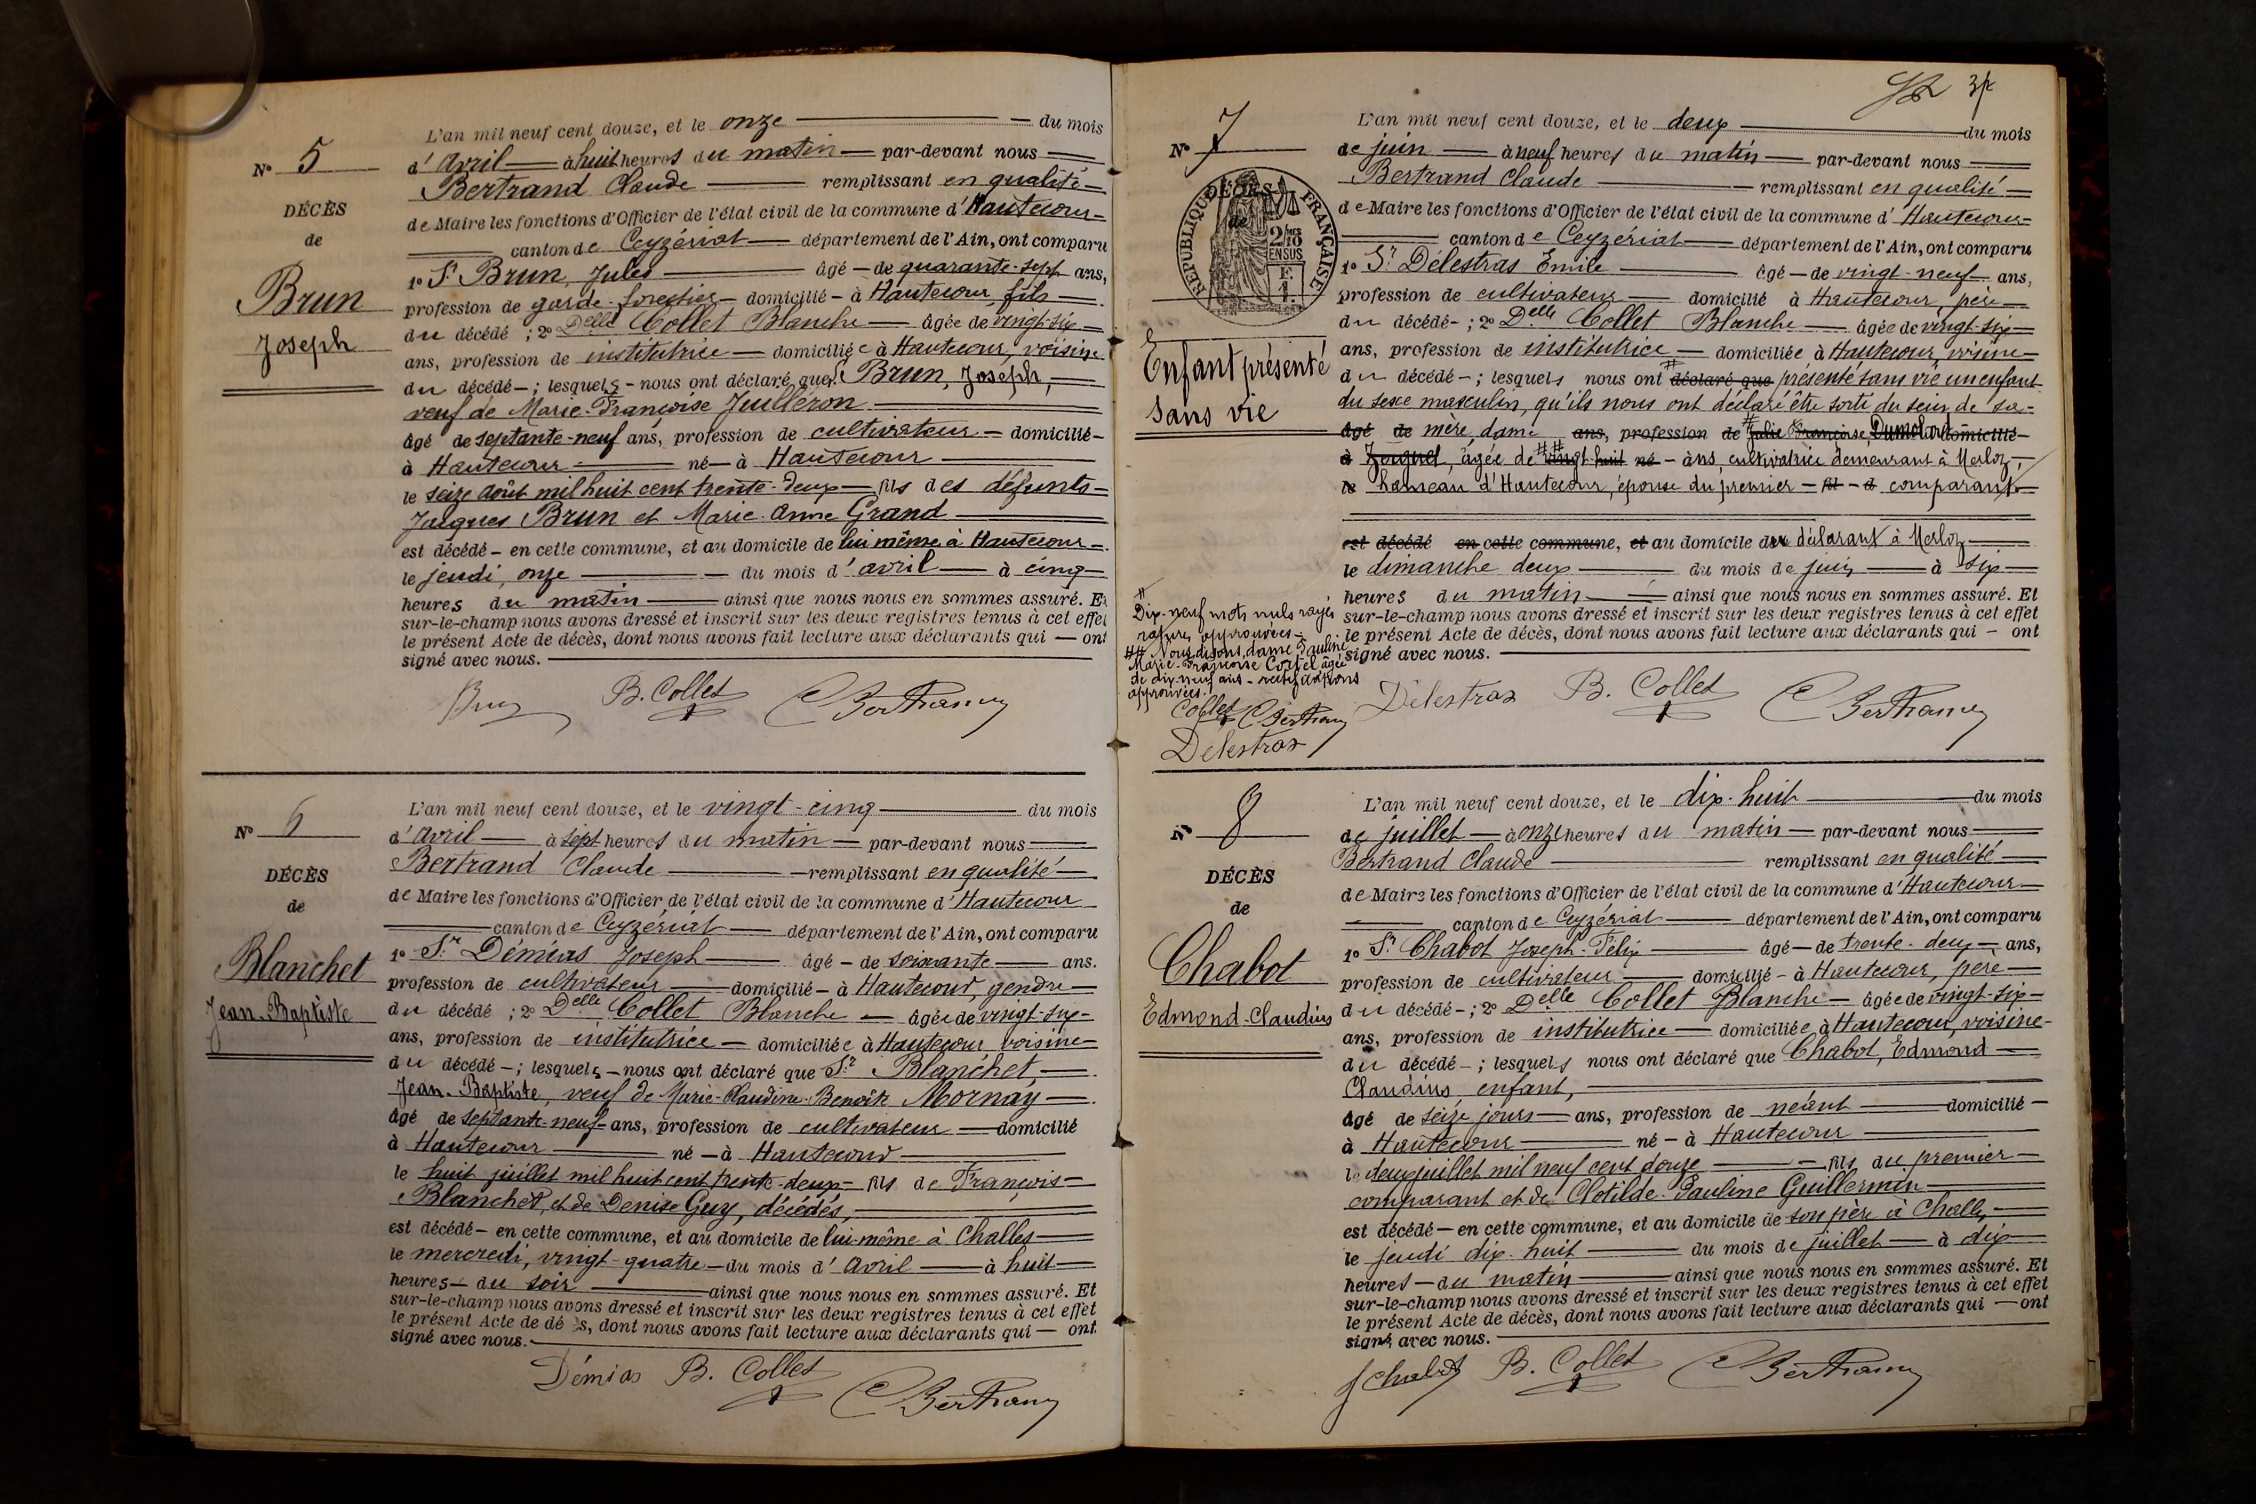 N° 5
DÉCÈS
de
Brun
Joseph
L'an mil neuf cent douze, et le onze du mois
d'avril à huit heures du matin par-devant nous
Bertrand Claude remplissant en qualité
de Maire les fonctions d'Officier de l'état civil de la commune d'Hautecour
canton de Ceyzériat département de l'Ain, ont comparu
1° Sr Brun, Jules âgé de quarante-sept ans,
profession de garde-forestier domicilié à Hautecour, fils
du décédé ; 2° Delle Collet Blanche âgée de vingt-six
ans, profession de institutrice domiciliée à Hautecour, voisine
du décédé ; lesquels nous ont déclaré que Sr Brun, Joseph,
veuf de Marie-Françoise Juilleron
âgé de septante-neuf ans, profession de cultivateur domicilié
à Hautecour né à Hautecour
le seize août mil huit cent trente-deux fils des défunts
Jacques Brun et Marie-Anne Grand
est décédé en cette commune, et au domicile de lui même à Hautecour
le jeudi, onze du mois d'avril à cinq
heures du matin ainsi que nous nous en sommes assuré. Et
sur-le-champ nous avons dressé et inscrit sur les deux registres tenus à cet effet
le présent Acte de décès, dont nous avons fait lecture aux déclarants qui ont
signé avec nous.
Brun B. Collet C Bertrand
N° 6
DÉCÈS
de
Blanchet
Jean-Baptiste
L'an mil neuf cent douze, et le vingt-cinq du mois
d'avril à sept heures du matin par-devant nous
Bertrand Claude remplissant en qualité
de Maire les fonctions d'Officier de l'état civil de la commune d'Hautecour
canton de Ceyzériat département de l'Ain, ont comparu
1° Sr Démias Joseph âgé de soixante ans.
profession de cultivateur domicilié à Hautecour, gendre
du décédé ; 2° Delle Collet Blanche âgée de vingt-six
ans, profession de institutrice domiciliée à Hautecour voisine
du décédé ; lesquels nous ont déclaré que Sr Blanchet,
Jean-Baptiste, veuf de Marie-Claudine-Benoîte Mornay
âgé de septante-neuf ans, profession de cultivateur domicilié
à Hautecour né à Hautecour
le huit juillet mil huit cent trente-deux fils de François
Blanchet, et de Denise Guy, décédés,
est décédé en cette commune, et au domicile de lui-même à Challes
le mercredi, vingt-quatre du mois d'avril à huit
heures du soir ainsi que nous nous en sommes assuré. Et
sur-le-champ nous avons dressé et inscrit sur les deux registres tenus à cet effet
le présent Acte de décès, dont nous avons fait lecture aux déclarants qui ont
signé avec nous.
Démias B. Collet C Bertrand
N° 7
DÉCÈS
de
RÉPUBLIQUE FRANÇAISE
2/10
EN SUS
Enfant présenté
sans vie
L'an mil neuf cent douze, et le deux du mois
de juin à neuf heures du matin par-devant nous
Bertrand Claude remplissant en qualité
de Maire les fonctions d'Officier de l'état civil de la commune d'Hautecour
canton de Ceyzériat département de l'Ain, ont comparu
1° Sr Délestras Emile âgé de vingt-neuf ans,
profession de cultivateur domicilié à Hautecour, père
du décédé ; 2° Delle Collet Blanche âgée de vingt-six
ans, profession de institutrice domiciliée à Hautecour, voisine
du décédé ; lesquels nous ont # déclaré que présenté sans vie un enfant
du sexe masculin, qu'ils nous ont déclaré être sorti du sein de sa
âgé de mère, dame ans, profession de # Julie Françoise, Dumolard domicilié
à Joguet, âgée de ## vingt-huit né ans, cultivatrice demeurant à Merloz,
le hameau d'Hautecour, épouse du premier comparant
est décédé en cette commune, et au domicile du déclarant à Merloz
le dimanche deux du mois de juin à six
heures du matin ainsi que nous nous en sommes assuré. Et
sur-le-champ nous avons dressé et inscrit sur les deux registres tenus à cet effet
le présent Acte de décès, dont nous avons fait lecture aux déclarants qui ont
signé avec nous.
#
Dix-neuf mots nuls rayés
approuvées
## Nous disons, dame Pauline
Marie-Françoise âgée
de dix-neuf ans
approuvées.
Collet C Bertrand
Delestras
Délestras B. Collet C Bertrand
N° 8
DÉCÈS
de
Chabot
Edmond-Claudius
L'an mil neuf cent douze, et le dix-huit du mois
de juillet à onze heures du matin par-devant nous
Bertrand Claude remplissant en qualité
de Maire les fonctions d'Officier de l'état civil de la commune d'Hautecour
canton de Ceyzériat département de l'Ain, ont comparu
1° Sr Chabot Joseph-Félix âgé de trente-deux ans,
profession de cultivateur domicilié à Hautecour, père
du décédé ; 2° Delle Collet Blanche âgée de vingt-six
ans, profession de institutrice domiciliée à Hautecour, voisine
du décédé ; lesquels nous ont déclaré que Chabot, Edmond
Claudius, enfant,
âgé de seize jours ans, profession de néant domicilié
à Hautecour né à Hautecour
le deux juillet mil neuf cent douze fils du premier
comparant et de Clotilde-Pauline Guillermin
est décédé en cette commune, et au domicile de son père à Challes,
le jeudi dix-huit du mois de juillet à dix
heures du matin ainsi que nous nous en sommes assuré. Et
sur-le-champ nous avons dressé et inscrit sur les deux registres tenus à cet effet
le présent Acte de décès, dont nous avons fait lecture aux déclarants qui ont
signé avec nous.
J Chabot B. Collet C Bertrand